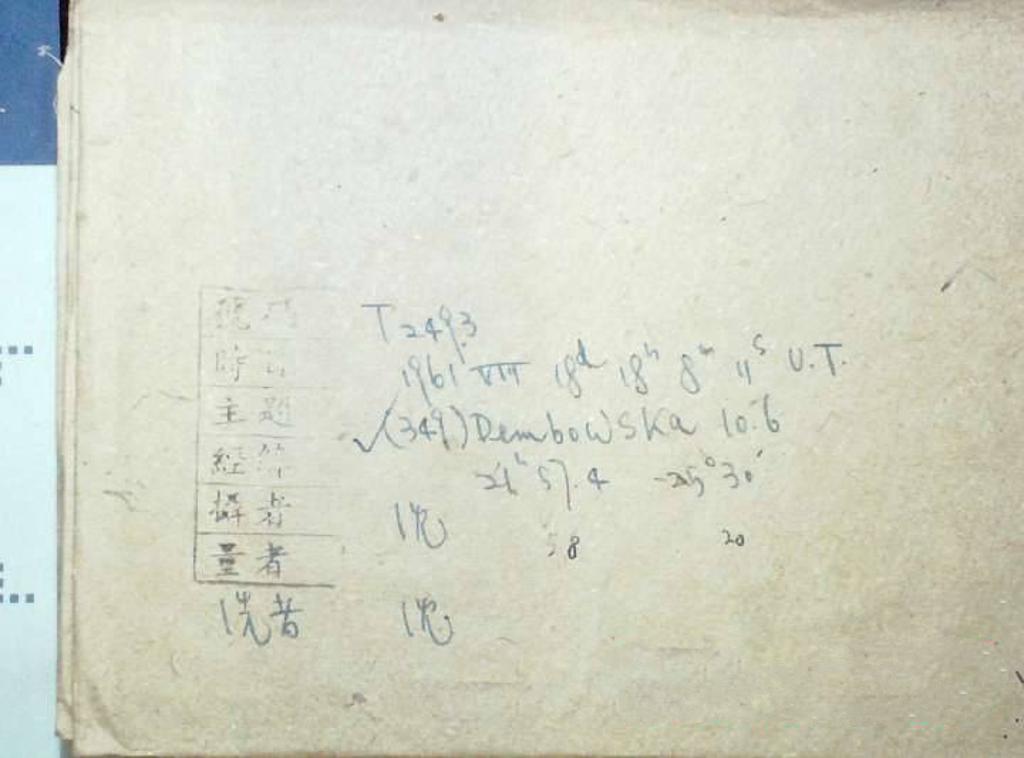 號碼 T2493
時間 1961 VIII 18d 18h 8m 11s U.T.
主題 ✓(349) Dembowska 10.6
經緯 21h 57.4 -25°30′
攝者 沈
58 20
量者
洗者 沈